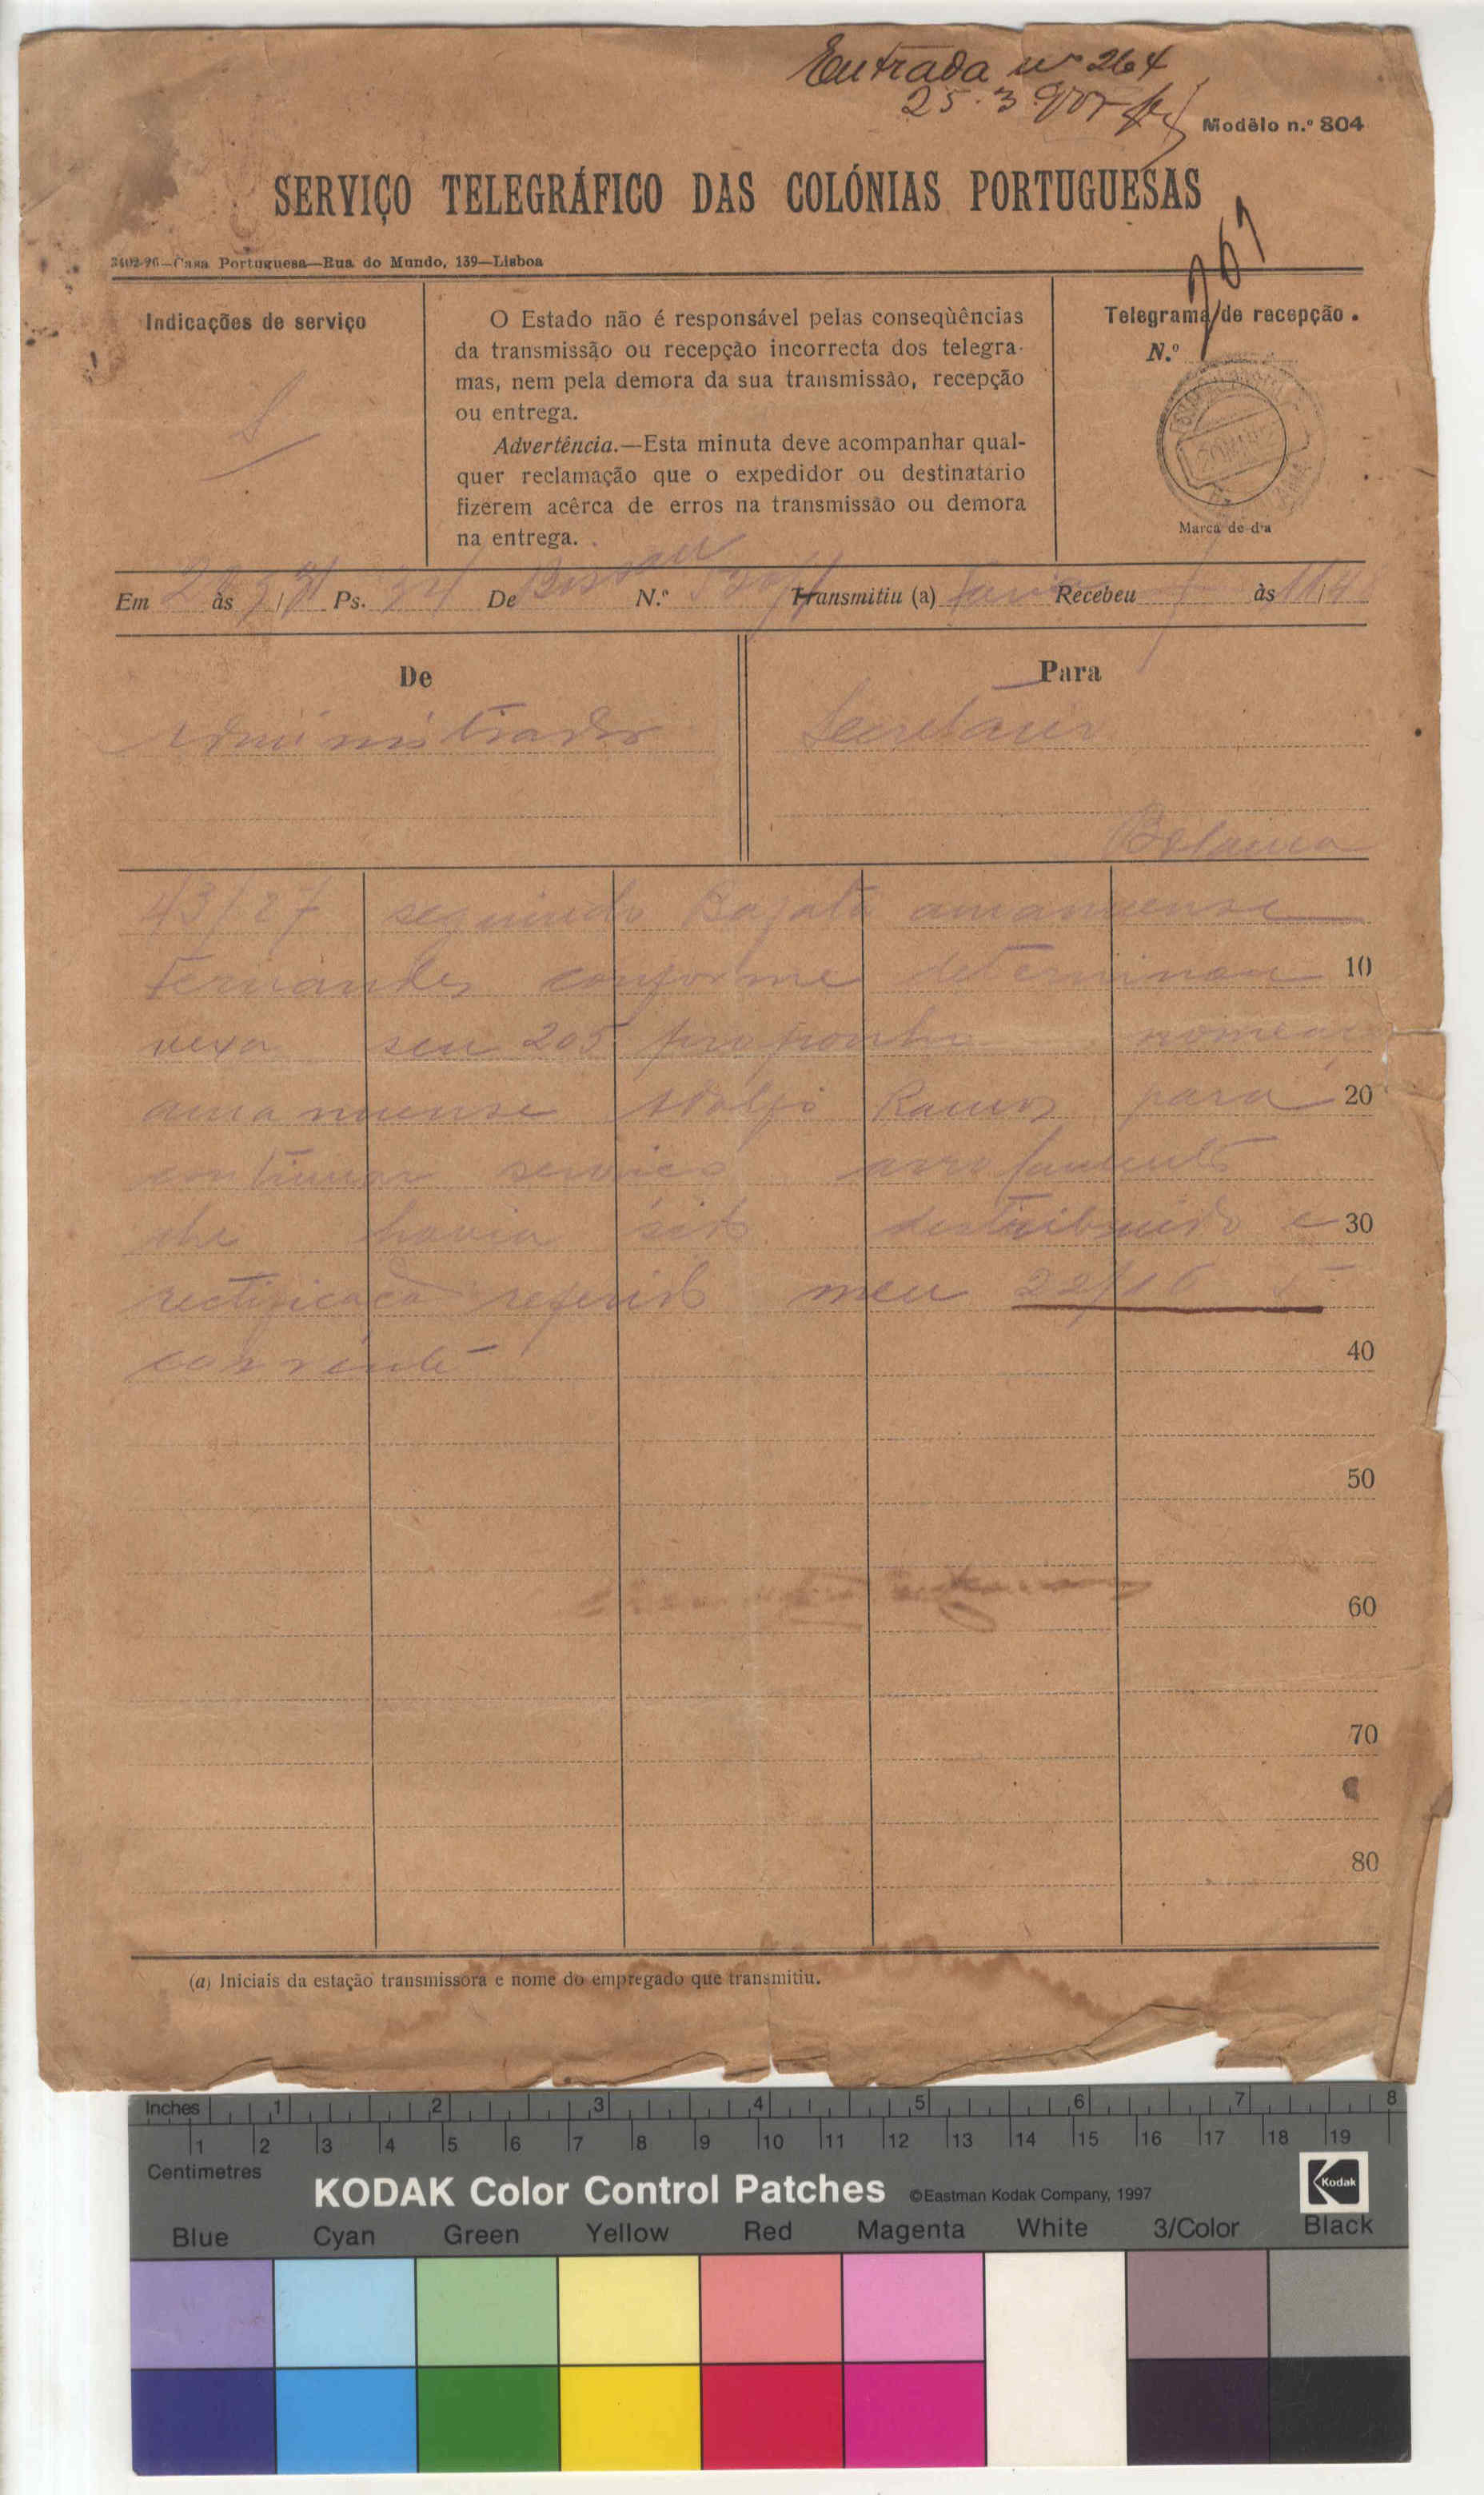 Entrada nº 264
25-3
Modêlo n.º 804
SERVIÇO TELEGRÁFICO DAS COLÓNIAS PORTUGUESAS
2402-96—Casa Portuguesa—Rua do Mundo, 139—Lisboa
Indicações de serviço
S
O Estado não é responsável pelas conseqùências
da transmissão ou recepção incorrecta dos telegra-
mas, nem pela demora da sua transmissão, recepção
ou entrega.
Advertência.—Esta minuta deve acompanhar qual-
quer reclamação que o expedidor ou destinatário
fizerem acêrca de erros na transmissão ou demora
na entrega.
Telegrama de recepção
N.º
Marca de dia
Em às Ps. De Bissau N.º Transmitiu (a) Recebeu às
De
Administrador
Para
Secretário
Bolama
43/27 seguindo Bafatá amanuense
Fernandes conforme determinou 10
vexa seu 205 proponho nomear
amanuense Adolfo Ramos para 20
continuar serviço arrolamento
lhe havia sido distribuido e 30
rectificação referido meu 22/16
corrente 40
50
60
70
80
(a) Iniciais da estação transmissora e nome do empregado que transmitiu.
Inches 1 2 3 4 5 6 7 8
1 2 3 4 5 6 7 8 9 10 11 12 13 14 15 16 17 18 19
Centimetres
KODAK Color Control Patches ©Eastman Kodak Company, 1997 Kodak
Blue Cyan Green Yellow Red Magenta White 3/Color Black